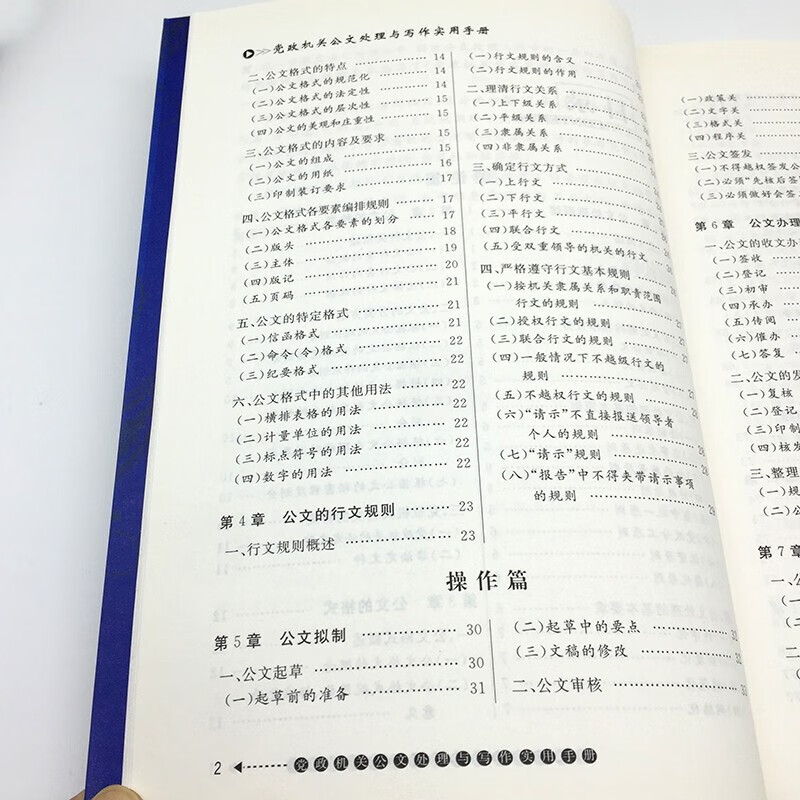 党政机关公文处理与写作实用手册
二、公文格式的特点 14
(一)公文格式的规范化 14
(二)公文格式的法定性 15
(三)公文格式的层次性 15
(四)公文的美观和庄重性 15
三、公文格式的内容及要求 15
(一)公文的组成 15
(二)公文的用纸 16
(三)印制装订要求 17
四、公文格式各要素编排规则 17
(一)公文格式各要素的划分 17
(二)版头 18
(三)主体 19
(四)版记 20
(五)页码 21
五、公文的特定格式 21
(一)信函格式 21
(二)命令(令)格式 22
(三)纪要格式 22
六、公文格式中的其他用法 22
(一)横排表格的用法 22
(二)计量单位的用法 22
(三)标点符号的用法 22
(四)数字的用法 22
第4章 公文的行文规则 23
一、行文规则概述 23
(一)行文规则的含义
(二)行文规则的作用
二、理清行文关系
(一)上下级关系
(二)平级关系
(三)隶属关系
(四)非隶属关系
三、确定行文方式
(一)上行文
(二)下行文
(三)平行文
(四)联合行文
(五)受双重领导的机关的行文
四、严格遵守行文基本规则
(一)按机关隶属关系和职责范围
行文的规则
(二)授权行文的规则
(三)联合行文的规则
(四)一般情况下不越级行文的
规则
(五)不越权行文的规则
(六)“请示”不直接报送领导者
个人的规则
(七)“请示”规则
(八)“报告”中不得夹带请示事项
的规则
操作篇
第5章 公文拟制 30
一、公文起草 30
(一)起草前的准备 31
(二)起草中的要点 32
(三)文稿的修改 32
二、公文审核
2 党政机关公文处理与写作实用手册
(一)政策关
(二)文字关
(三)格式关
(四)程序关
三、公文签发
(一)不得越权签发公
(二)必须“先核后签
(三)必须做好会签
第6章 公文办理
一、公文的收文办
(一)签收
(二)登记
(三)初审
(四)承办
(五)传阅
(六)催办
(七)答复
二、公文的发
(一)复核
(二)登记
(三)印制
(四)核发
三、整理
(一)规
(二)公
第7章
一、公
(一)
(二)
二、
(一)
(二)